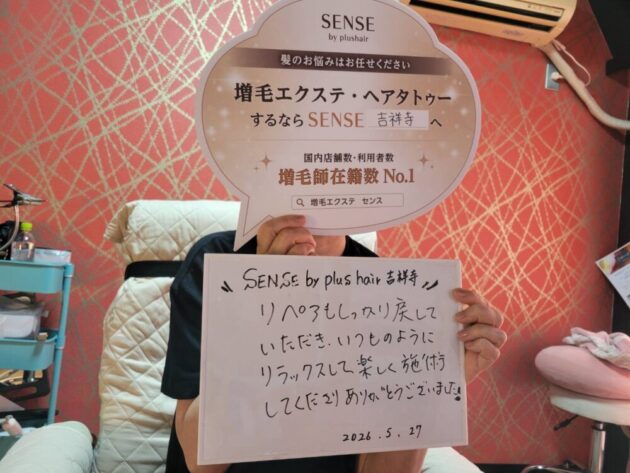 SENSE
by plushair
髪のお悩みはお任せください
増毛エクステ・ヘアタトゥー
するなら SENSE 吉祥寺 へ
国内店舗数・利用者数
増毛師在籍数 No.1
増毛エクステ センス
SENSE by plus hair 吉祥寺
リペアもしっかり戻して
いただき、いつものように
リラックスして楽しく施術
してくださりありがとうございました!
2026.5.27